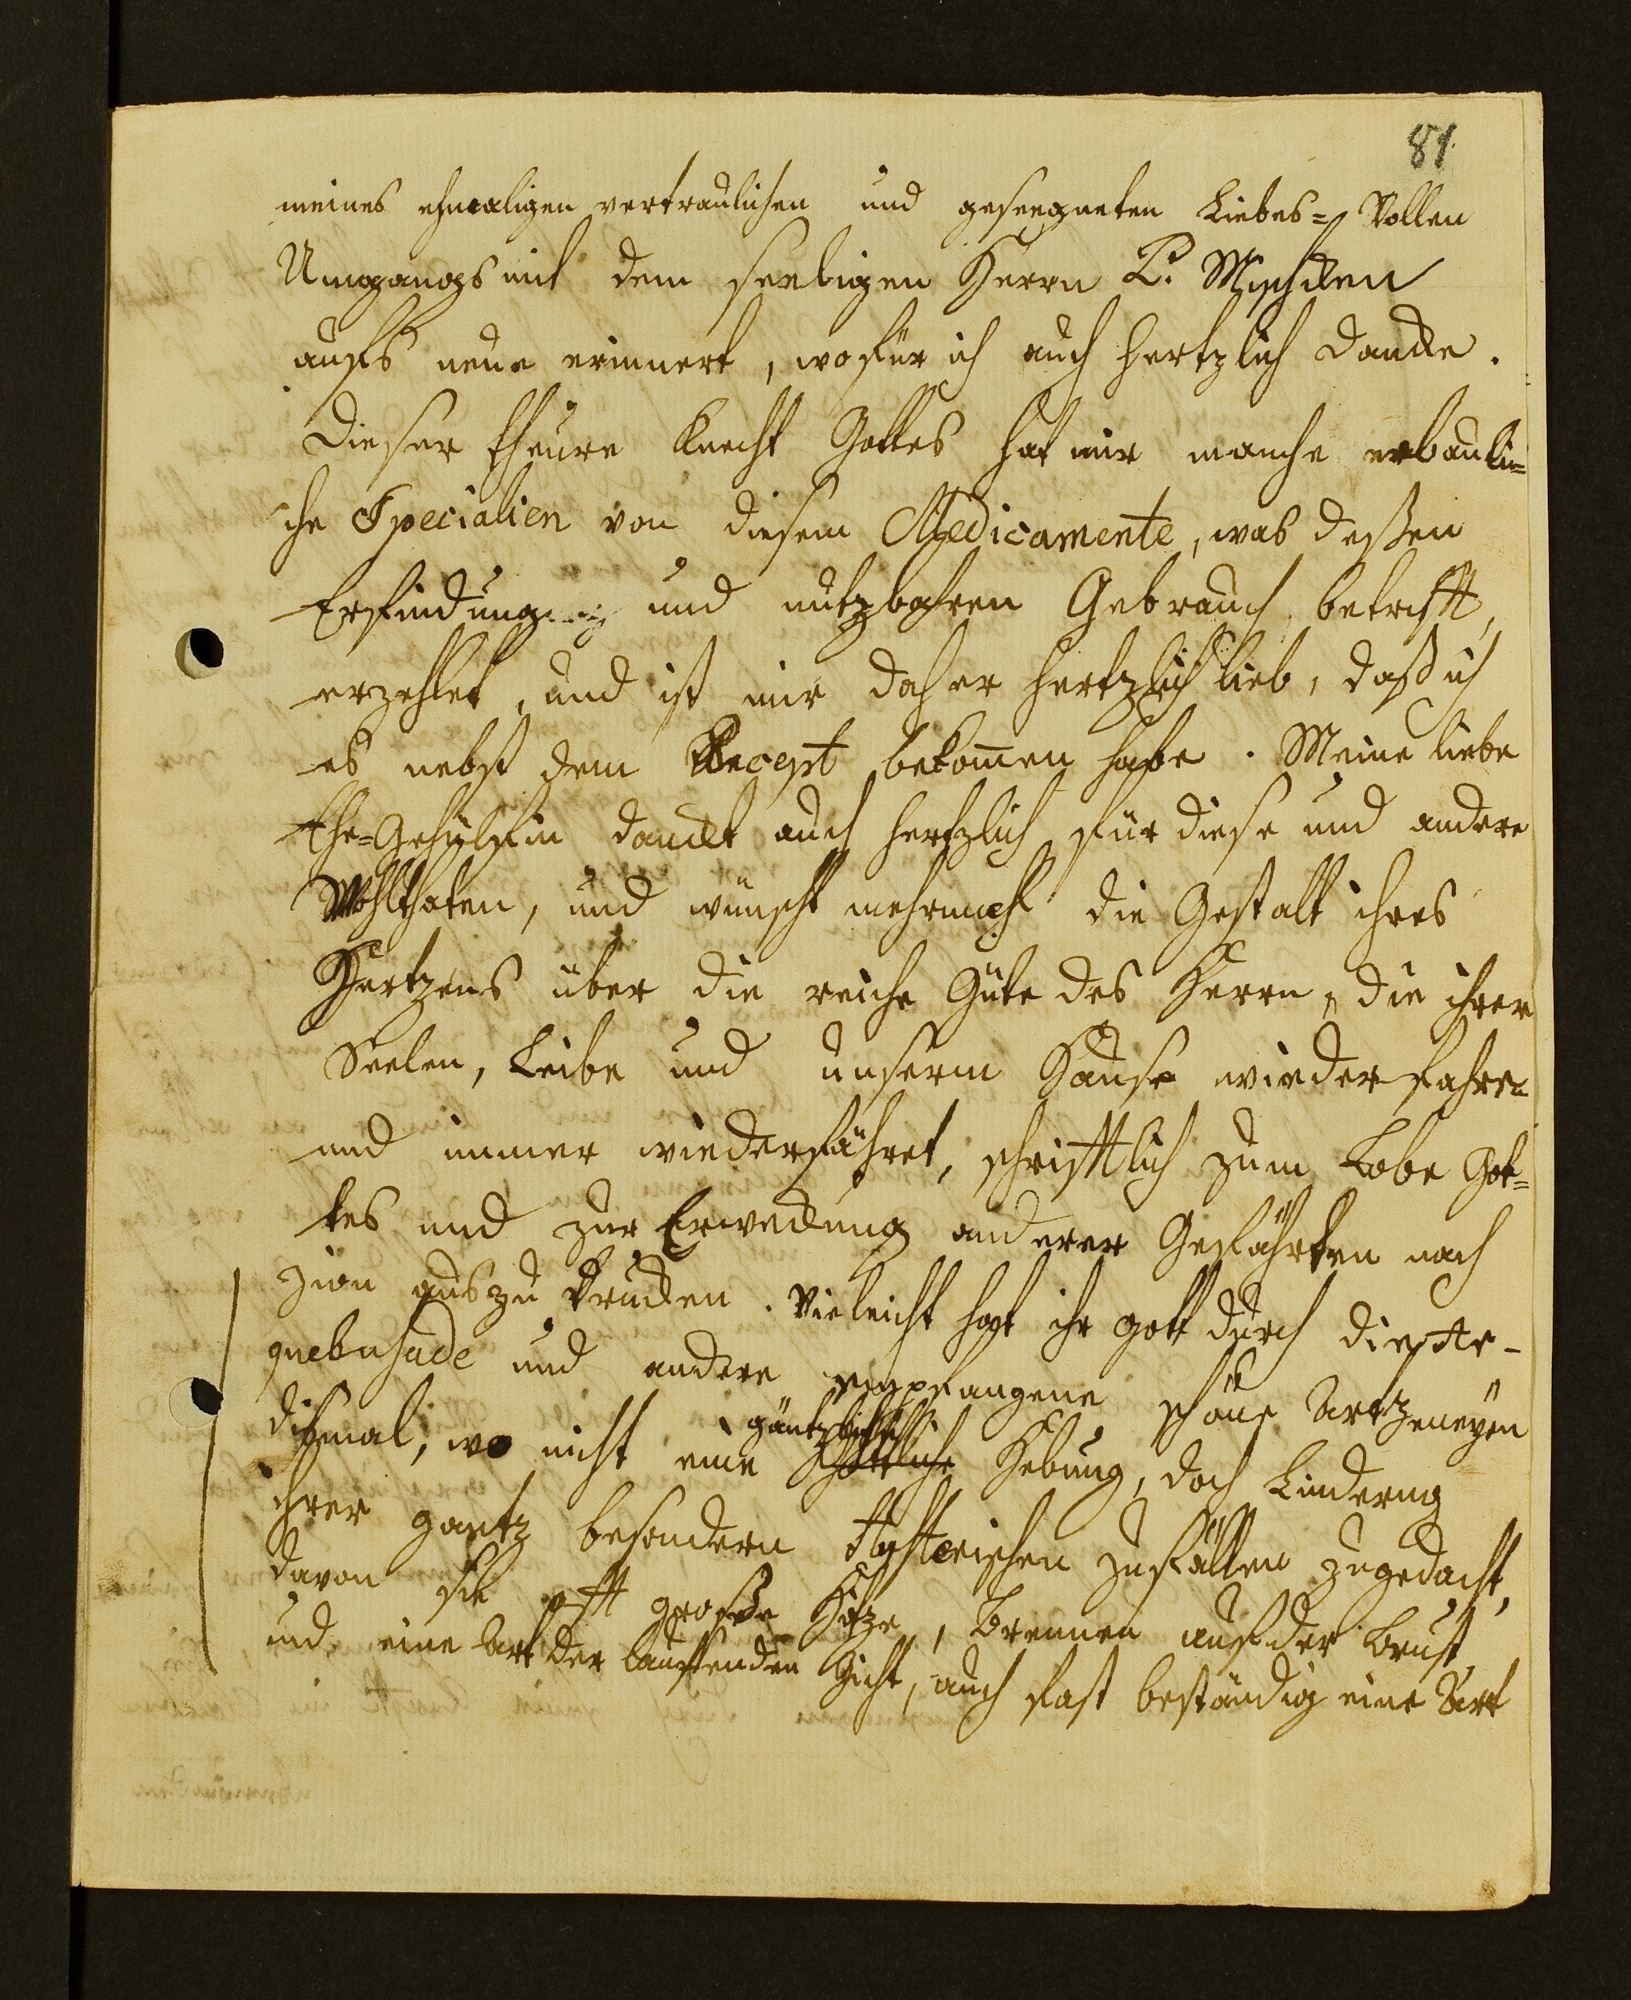 81.
meines ehmaligen vertraulichen und geseegneten Liebes= Vollen
Umgangs mit dem seeligen Herrn P. Mischken
aufs neue erinnert, wofür ich auch hertzlich dancke.
Dieser theure Knecht Gottes hat mir manche erbauli=
che Specialien von diesem Medicamente, was deßen
Erfindung und nutzbahren Gebrauch betrifft,
erzehlet, und ist mir daher hertzlich lieb, daß ich
es nebst dem Recept bekom̅en habe. Meine liebe
Ehe=Gehülfin danckt auch hertzlich für diese und andere
Wohlthaten, und wünscht die Gestalt ihres
Hertzens über die reiche Güte des Herrn, die ihrer
Seelen, Leibe und unserm Hause wiederfahren
und immer wiederfähret, schrifftlich zum Lobe Got=
tes und zur Erweckung anderer Gefährten nach
Zion auszudrucken. Vieleicht hat ihr Gott durch die Ar-
quebusade und andere empfangene schöne Artzeneyen
dißmal, wo nicht eine gäntzliche Hebung, doch Linderung
ihrer gantz besondern Hysterischen Zufällen zugedacht,
davon sie offt grosse Hitze, Brennen auf der Brust,
und eine Art der lauffenden Gicht, auch fast beständig eine Art